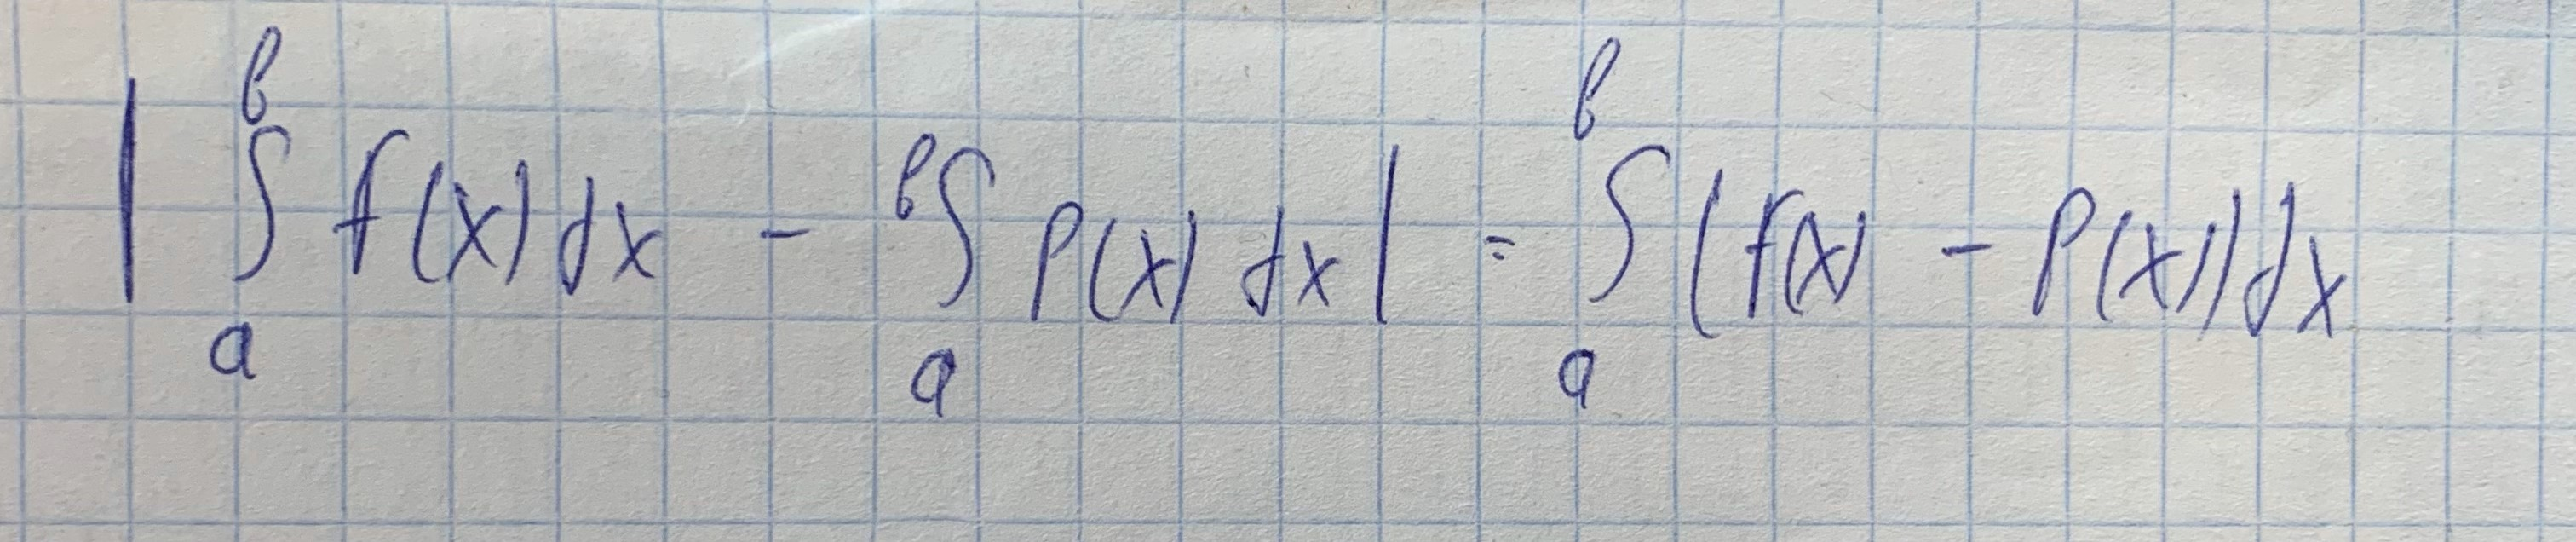 | ∫_a^b f(x) dx - ∫_a^b P(x) dx | = ∫_a^b (f(x) - P(x)) dx